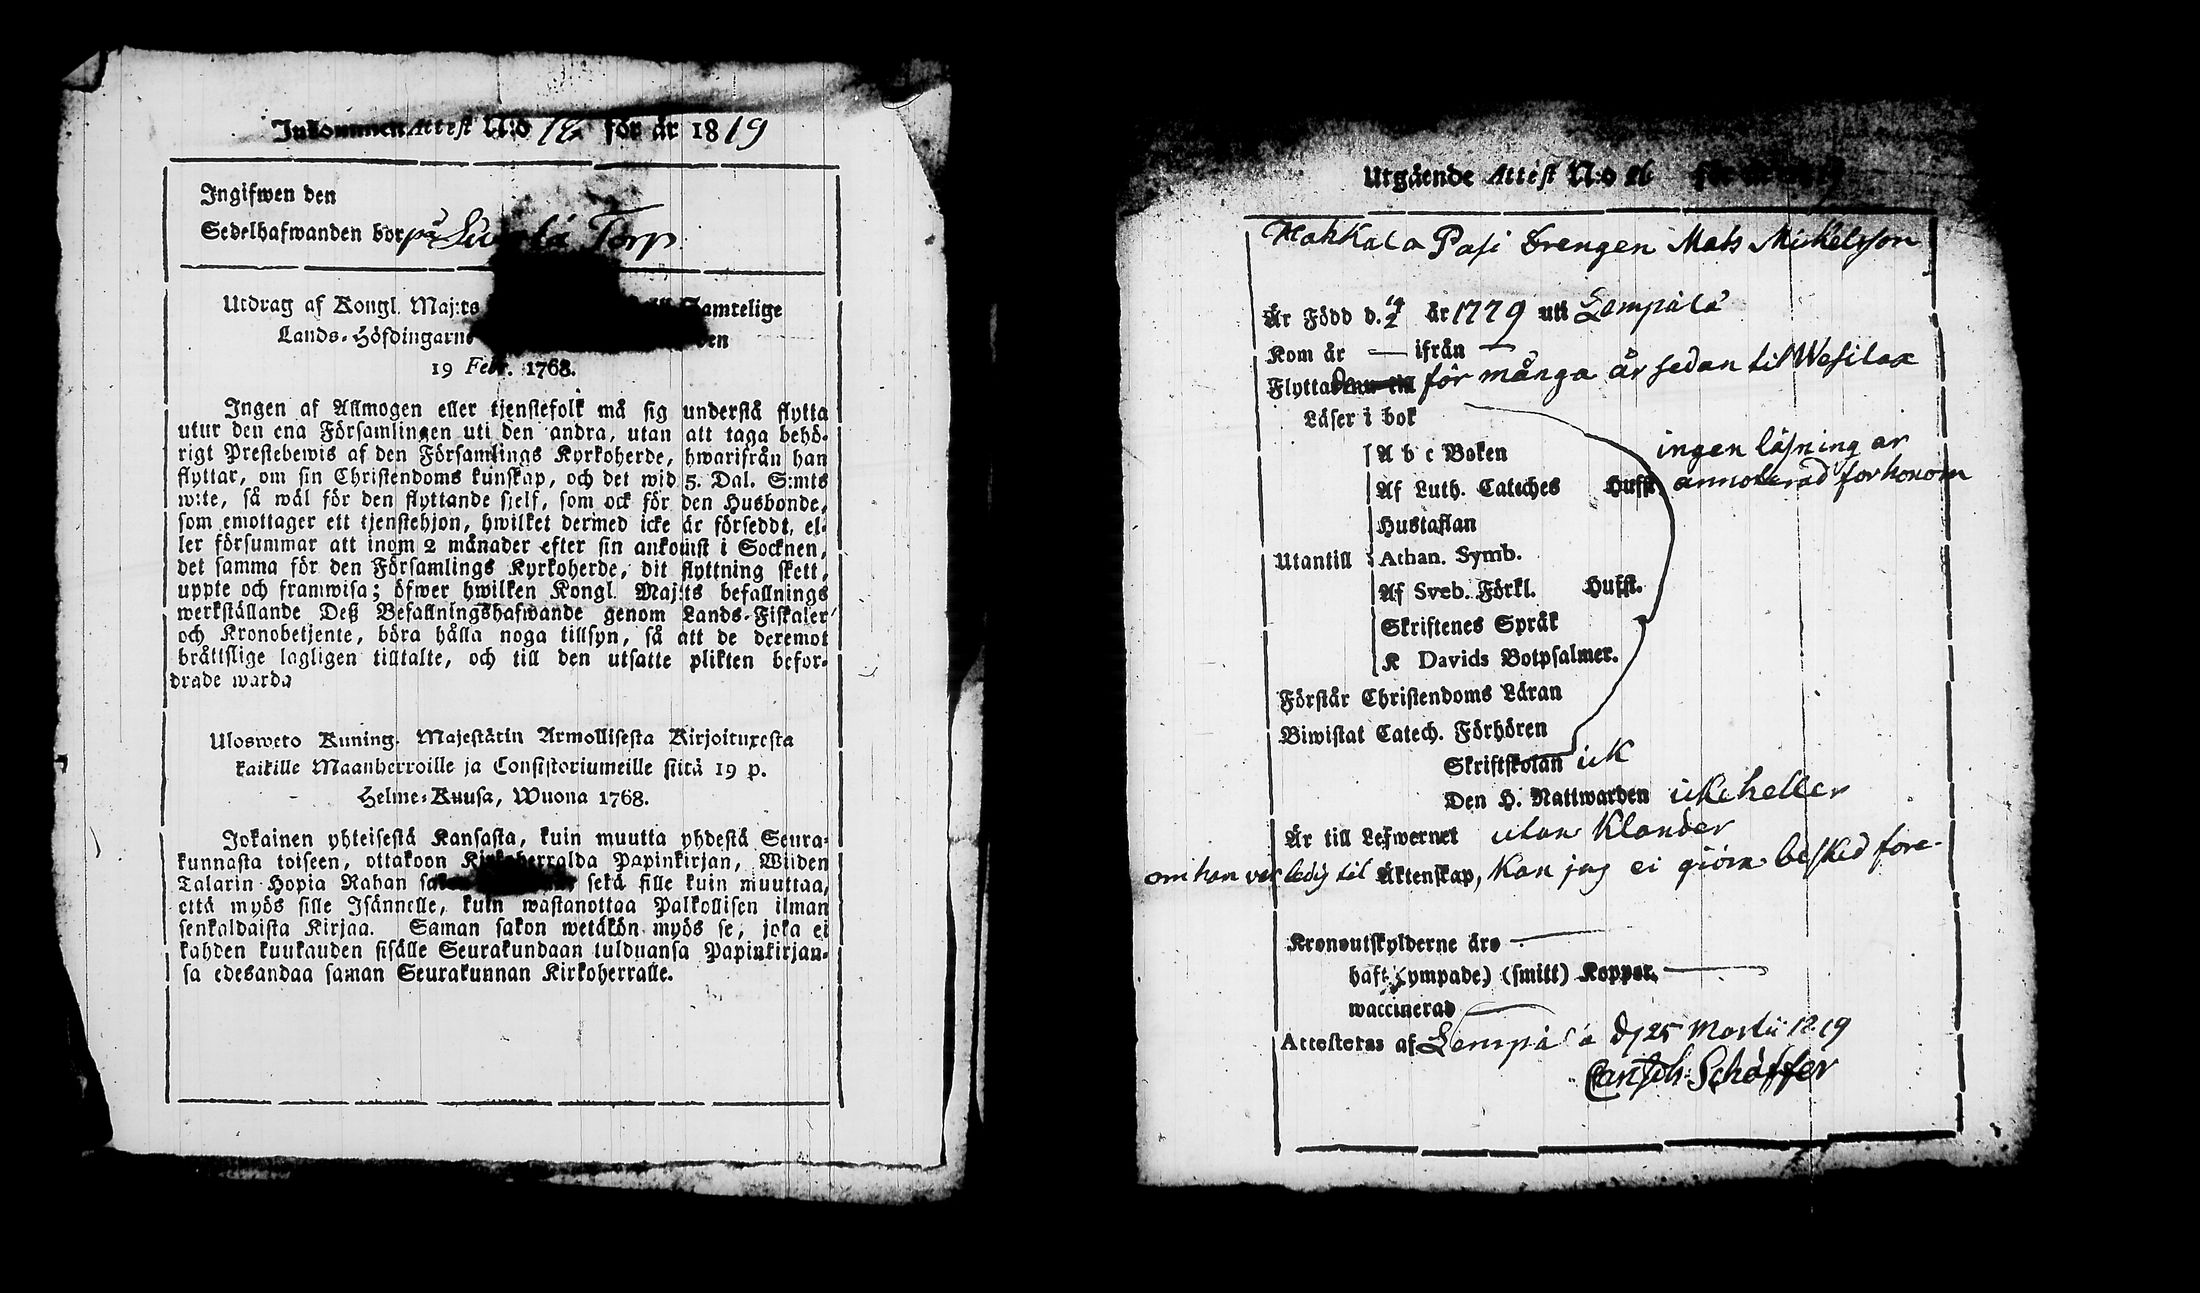 Inkommen Attest N:o 18 för år 1819
Ingifwen den
Sedelhafwanden bor på Torp
Utdrag af Kongl. Maj:ts Samtelige
Lands-Höfdingarne den
19 Febr. 1768.
Ingen af Allmogen eller tjenstefolk må sig understå flytta
utur den ena Församlingen uti den andra, utan att taga behö-
rigt Prestebewis af den Församlings Kyrkoherde, hwarifrån han
flyttar, om sin Christendoms kunskap, och det wid 5. Dal. S:mts
wite, så wäl för den flyttande sjelf, som ock för den Husbonde,
som emottager ett tjenstehjon, hwilket dermed icke är försedt, el-
ler försummar att inom 2 månader efter sin ankomst i Socknen,
det samma för den Församlings Kyrkoherde, dit flyttning skett,
uppte och framwisa; öfwer hwilken Kongl. Maj:ts befallnings
werkställande Deß Befallningshafwande genom Lands-Fiskaler
och Kronobetjente, böra hålla noga tillsyn, så att de deremot
bråttslige lagligen tilltalte, och till den utsatte plikten befor-
drade warda
Ulosweto Kuning. Majestätin Armollisesta Kirjoituxesta
kaikille Maanherroille ja Consistoriumeille siitä 19 p.
Helme-Kuusa, Wuona 1768.
Jokainen yhteisestä Kansasta, kuin muutta yhdestä Seura-
kunnasta toiseen, ottakoon Kirkoherralda Papinkirjan, Wiiden
Talarin Hopia Rahan sekä sille kuin muuttaa,
että myös sille Isännelle, kuin wastanottaa Palkollisen ilman
senkaldaista Kirjaa. Saman sakon wetäkön myös se, joka ei
kahden kuukauden sisälle Seurakundaan tulduansa Papinkirjan-
sa edesandaa saman Seurakunnan Kirkoherralle.
Utgående Attest N:o 16 för år
Hakkala Pasi Drengen Mats Mickelsson
Är Född d. 14/2 år 1779 uti Lempälä
Kom år — ifrån —
Flyttade för många år sedan til Wesilax
Läser i bok
A b c Boken ingen läsning ar
Af Luth. Catches Hufst. annoterad for honom
Hustaflan
Utantill Athan. Symb.
Af Sveb. Förkl. Hufst.
Skriftenes Språk
K Davids Botpsalmer.
Förstår Christendoms Läran
Biwistat Catech. Förhören
Skriftskolan ick
Den H. Nattwarden icke heller
Är till Lefwernet utan Klander
om han var ledig til Äktenskap, Kan jag ei giöra besked före.
Kronoutskylderne äro —
haft (ympade) (smitt) Koppor. —
waccinerad —
Attesteras af Lempälä d. 25 Martii 1819
Schäffer